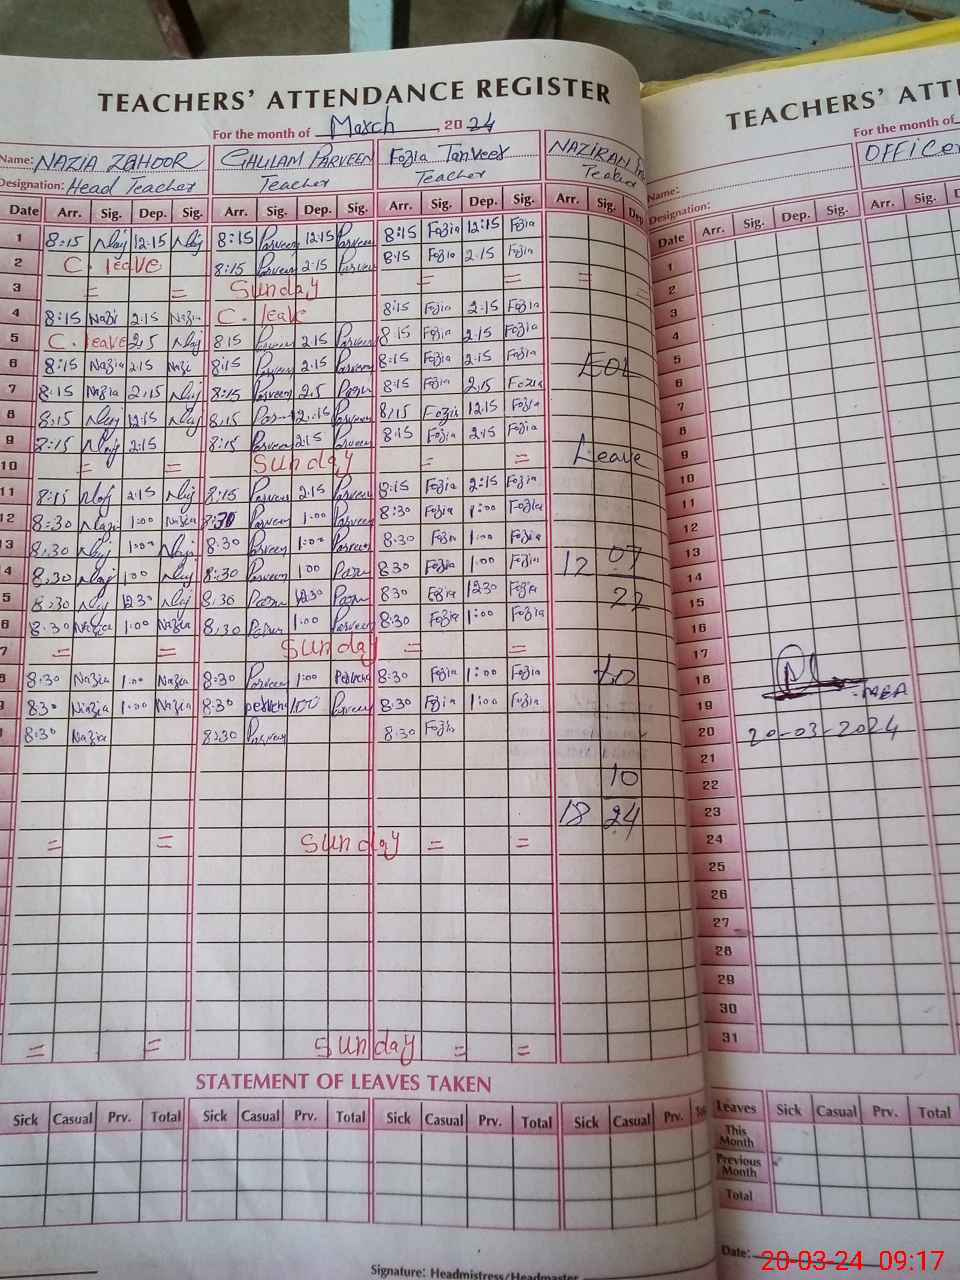 TEACHERS' ATTENDANCE REGISTER
For the month of March, 2024
Name: NAZIA ZAHOOR GHULAM PARVEEN Fozia Tanveer NAZIRAN
Designation: Head Teacher Teacher Teacher Teacher
Date Arr. Sig. Dep. Sig. Arr. Sig. Dep. Sig. Arr. Sig. Dep. Sig. Arr. Sig. Dep
1 8:15 12:15 8:15 Parveen 12:15 Parveen 8:15 Fozia 12:15 Fozia
2 C. leave 8:15 Parveen 2:15 Parveen 8:15 Fozia 2:15 Fozia
3 = = Sunday = = =
4 8:15 Nazi 2:15 Nazia C. leave 8:15 Fozia 2:15 Fozia
5 C. leave 2:5 8:15 Parveen 2:15 Parveen 8:15 Fozia 2:15 Fozia
6 8:15 Nazia 2:15 8:15 Parveen 2:15 Parveen 8:15 Fozia 2:15 Fozia EOL
7 8:15 Nazia 2:15 8:15 Parveen 2:5 8:15 Fozia 2:15 Fozia
8 8:15 12:15 8:15 12:15 Parveen 8:15 Fozia 12:15 Fozia
9 8:15 2:15 8:15 Parveen 2:15 Parveen 8:15 Fozia 2:15 Fozia
10 = = Sunday = = Leave
11 8:15 2:15 8:15 Parveen 2:15 Parveen 8:15 Fozia 2:15 Fozia
12 8:30 1:00 Nazia 8:30 Parveen 1:00 Parveen 8:30 Fozia 1:00 Fozia
13 8:30 1:00 8:30 Parveen 1:00 Parveen 8:30 Fozia 1:00 Fozia
4 8:30 1:00 8:30 Parveen 1:00 8:30 Fozia 1:00 Fozia 12 07
5 8:30 12:30 8:30 12:30 8:30 Fozia 12:30 Fozia 22
6 8:30 Nazia 1:00 Nazia 8:30 1:00 Parveen 8:30 Fozia 1:00 Fozia
7 = = Sunday = =
8:30 Nazia 1:00 Nazia 8:30 Parveen 1:00 Parveen 8:30 Fozia 1:00 Fozia to
8:30 Nazia 1:00 Nazia 8:30 Parveen 1:00 Parveen 8:30 Fozia 1:00 Fozia
8:30 Nazia 8:30 Parveen 8:30 Fozia
10
18 24
= = Sunday = =
= = Sunday = =
STATEMENT OF LEAVES TAKEN
Sick Casual Prv. Total Sick Casual Prv. Total Sick Casual Prv. Total Sick Casual Prv.
Signature: Headmistress/Headmaster
TEACHERS' ATT
For the month of
Name: OFFICE
Designation:
Date Arr. Sig. Dep. Sig. Arr. Sig.
1
2
3
4
5
6
7
8
9
10
11
12
13
14
15
16
17
18
19
20 20-03-2024
21
22
23
24
25
26
27
28
29
30
31
Leaves Sick Casual Prv. Total
This Month
Previous Month
Total
Date:
20-03-24 09:17